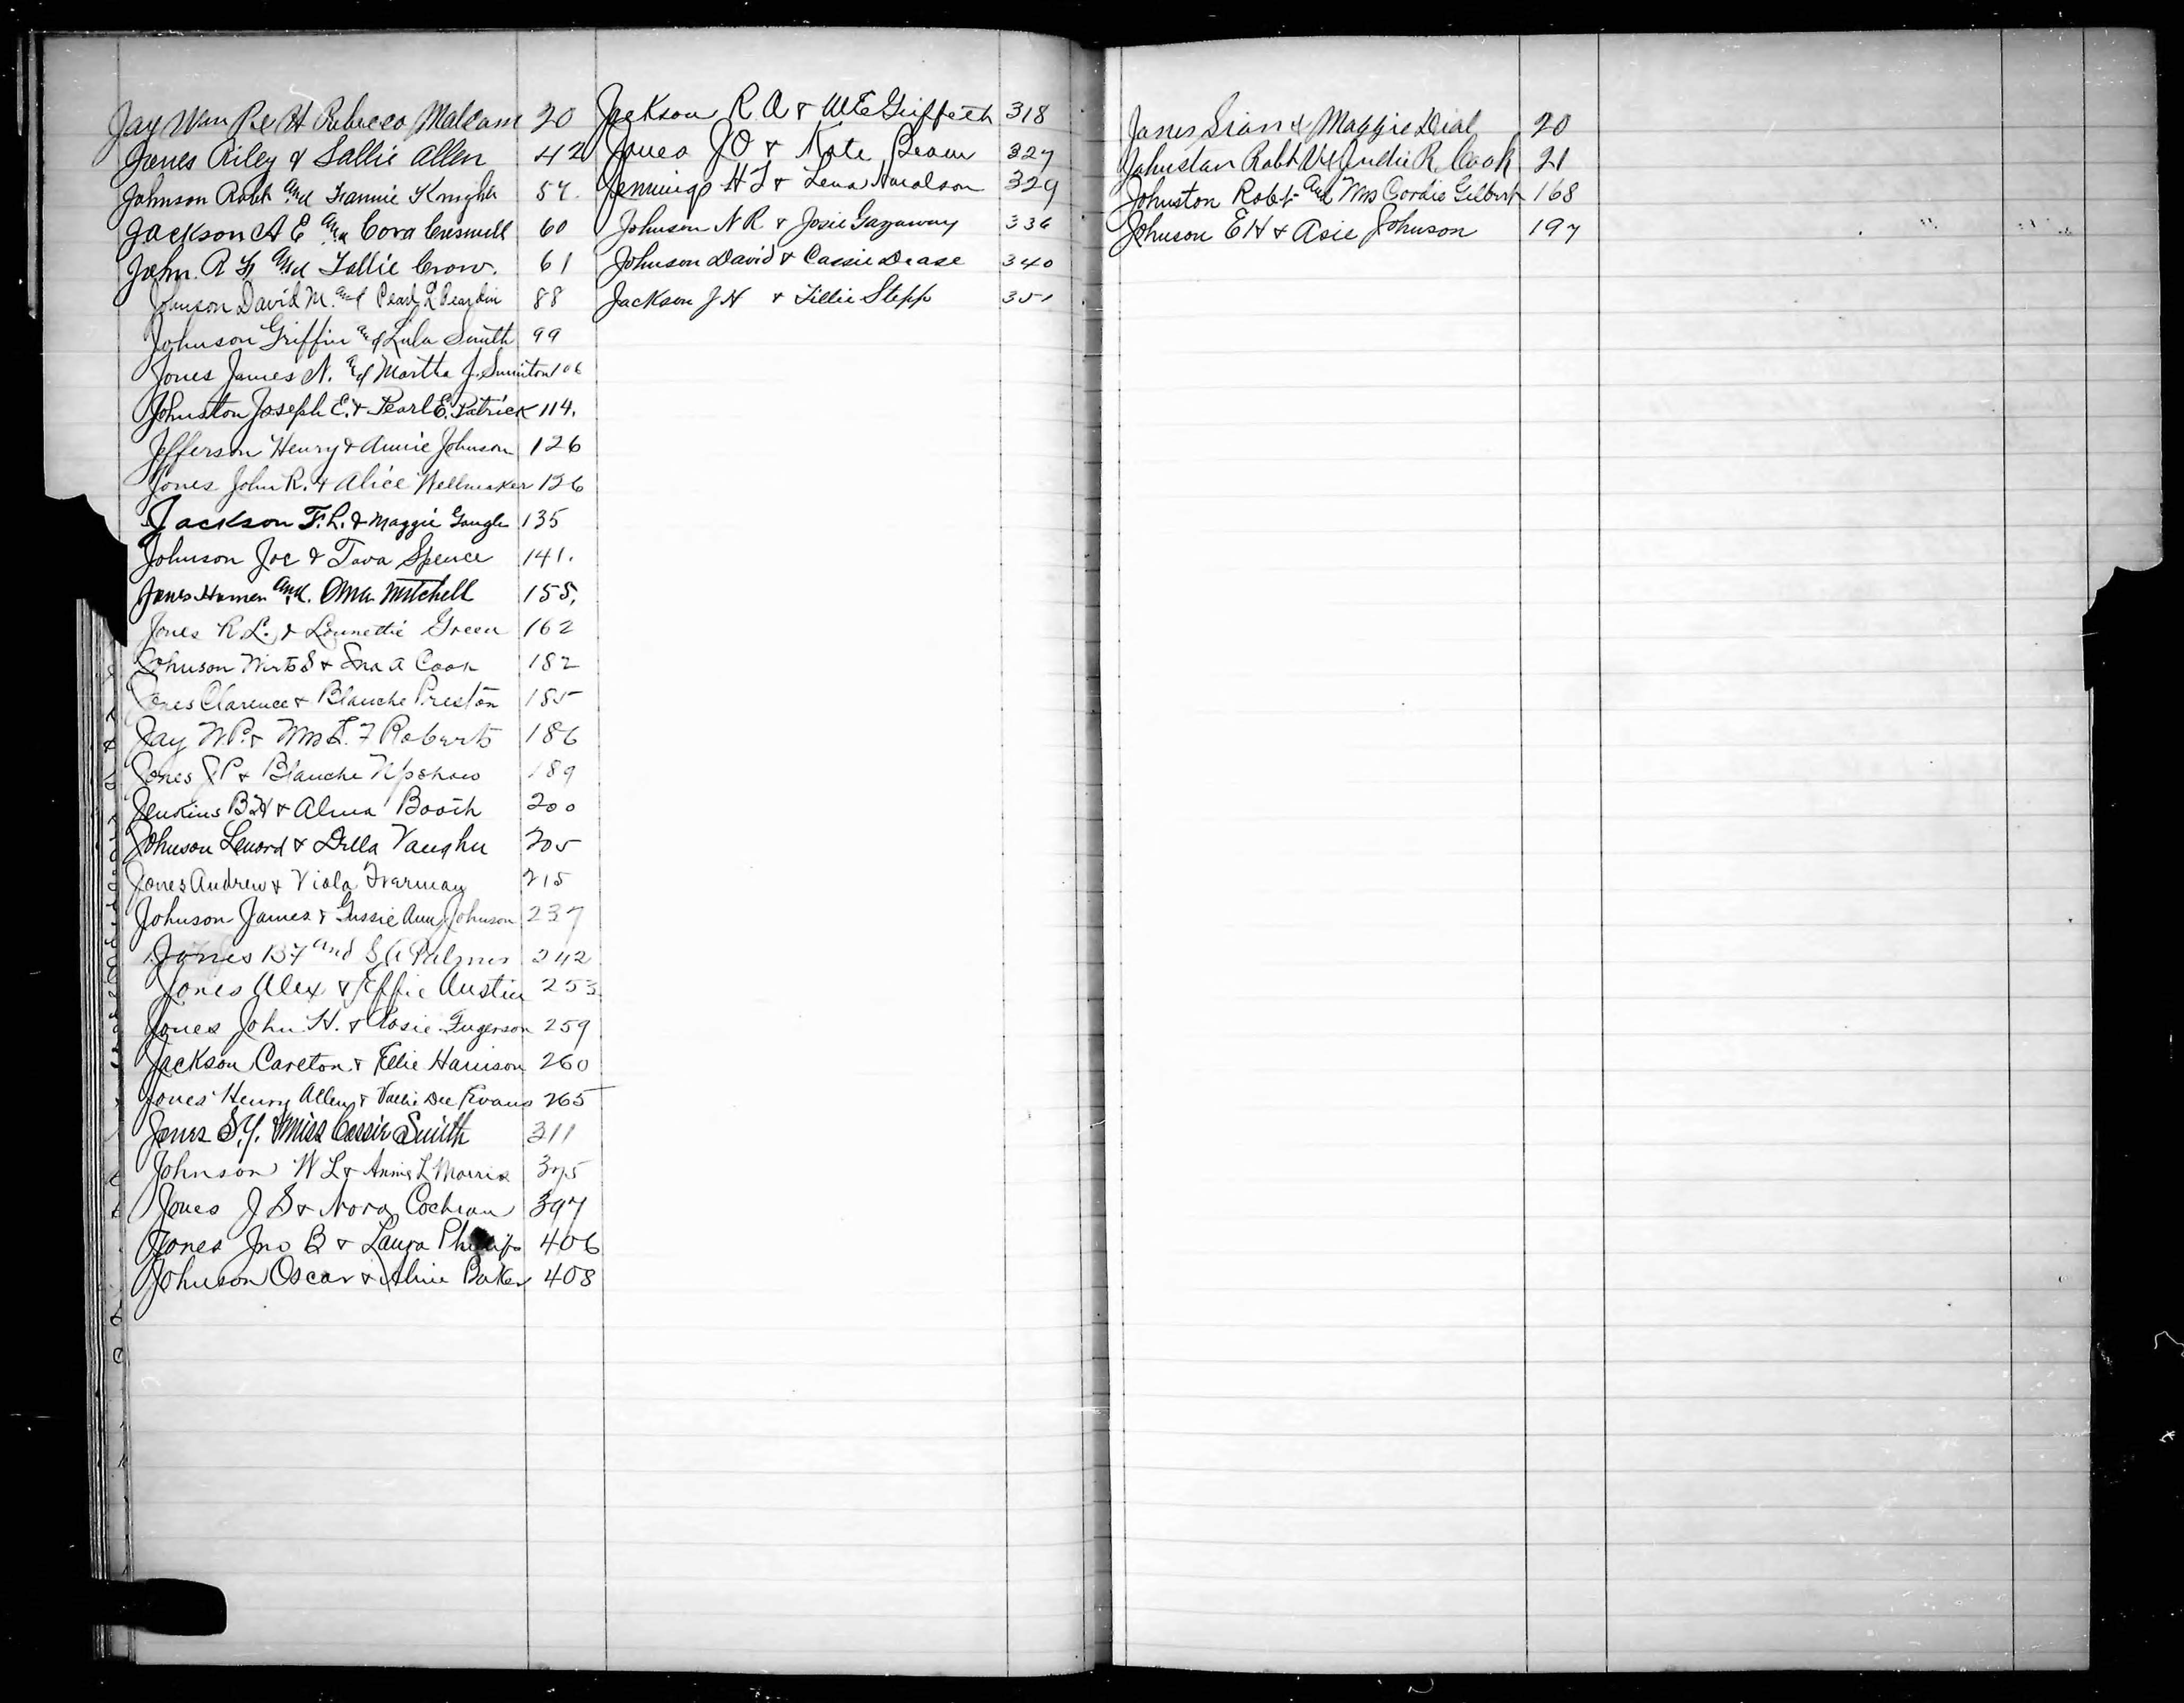 Jay Wm Rebecca Malcom 20
Jones Riley & Sallie Allen 42
Johnson Robt and Fannie Knight 57.
Jackson A E and Cora Criswell 60
John. R F and Lollie Crow. 61
Johnson David M. and Pearl 88
Johnson Griffin and Lula Smith 99
Jones James N. and Martha J. 106
Johnston Joseph E. & Pearl E. Patrick 114.
Jefferson Henry & Annie Johnson 126
Jones John R. & Alice Wellmaker 126
Jackson F. L. & Maggie 135
Johnson Joe & Spence 141.
Jones Homer and. Oma Mitchell 155.
Jones R. L. & Green 162
Johnson S & A Cook 182
Jones Clarence & Blanche Preston 185
Jay W. P. & Mrs L. F Roberts 186
Jones J P & Blanche Upshaw 189
Jenkins B H & Alma Booth 200
Johnson Lenord & Della Vaughn 205
Jones Andrew & Viola 215
Johnson James & Gussie Ann Johnson 237
Jones B F and S A Palmer 242
Jones Alex & Effie Austin 253
Jones John H. & Rosie Fugerson 259
Jackson Carlton & Ellie Harrison 260
Jones Henry Allen & Dee Evans 265
Jones S. Y. & Miss Cassie Smith 311
Johnson W L & Annie L Morris 375
Jones J S & Nora Cochran 397
Jones Jno B & Laura Phillips 406
Johnson Oscar & Aline Baker 408
Jackson R. A & Griffeth 318
Jones J O & Kate Beam 327
Jennings H T & Lena 329
Johnson N R & Josie Gazaway 336
Johnson David & Cassie Dease 340
Jackson J H & Tillie Stepp 351
Jones & Maggie Dial 20
Johnston Robt R. Cook 21
Johnston Robt and Mrs Cordie Gilbert 168
Johnson E H & Asie Johnson 197